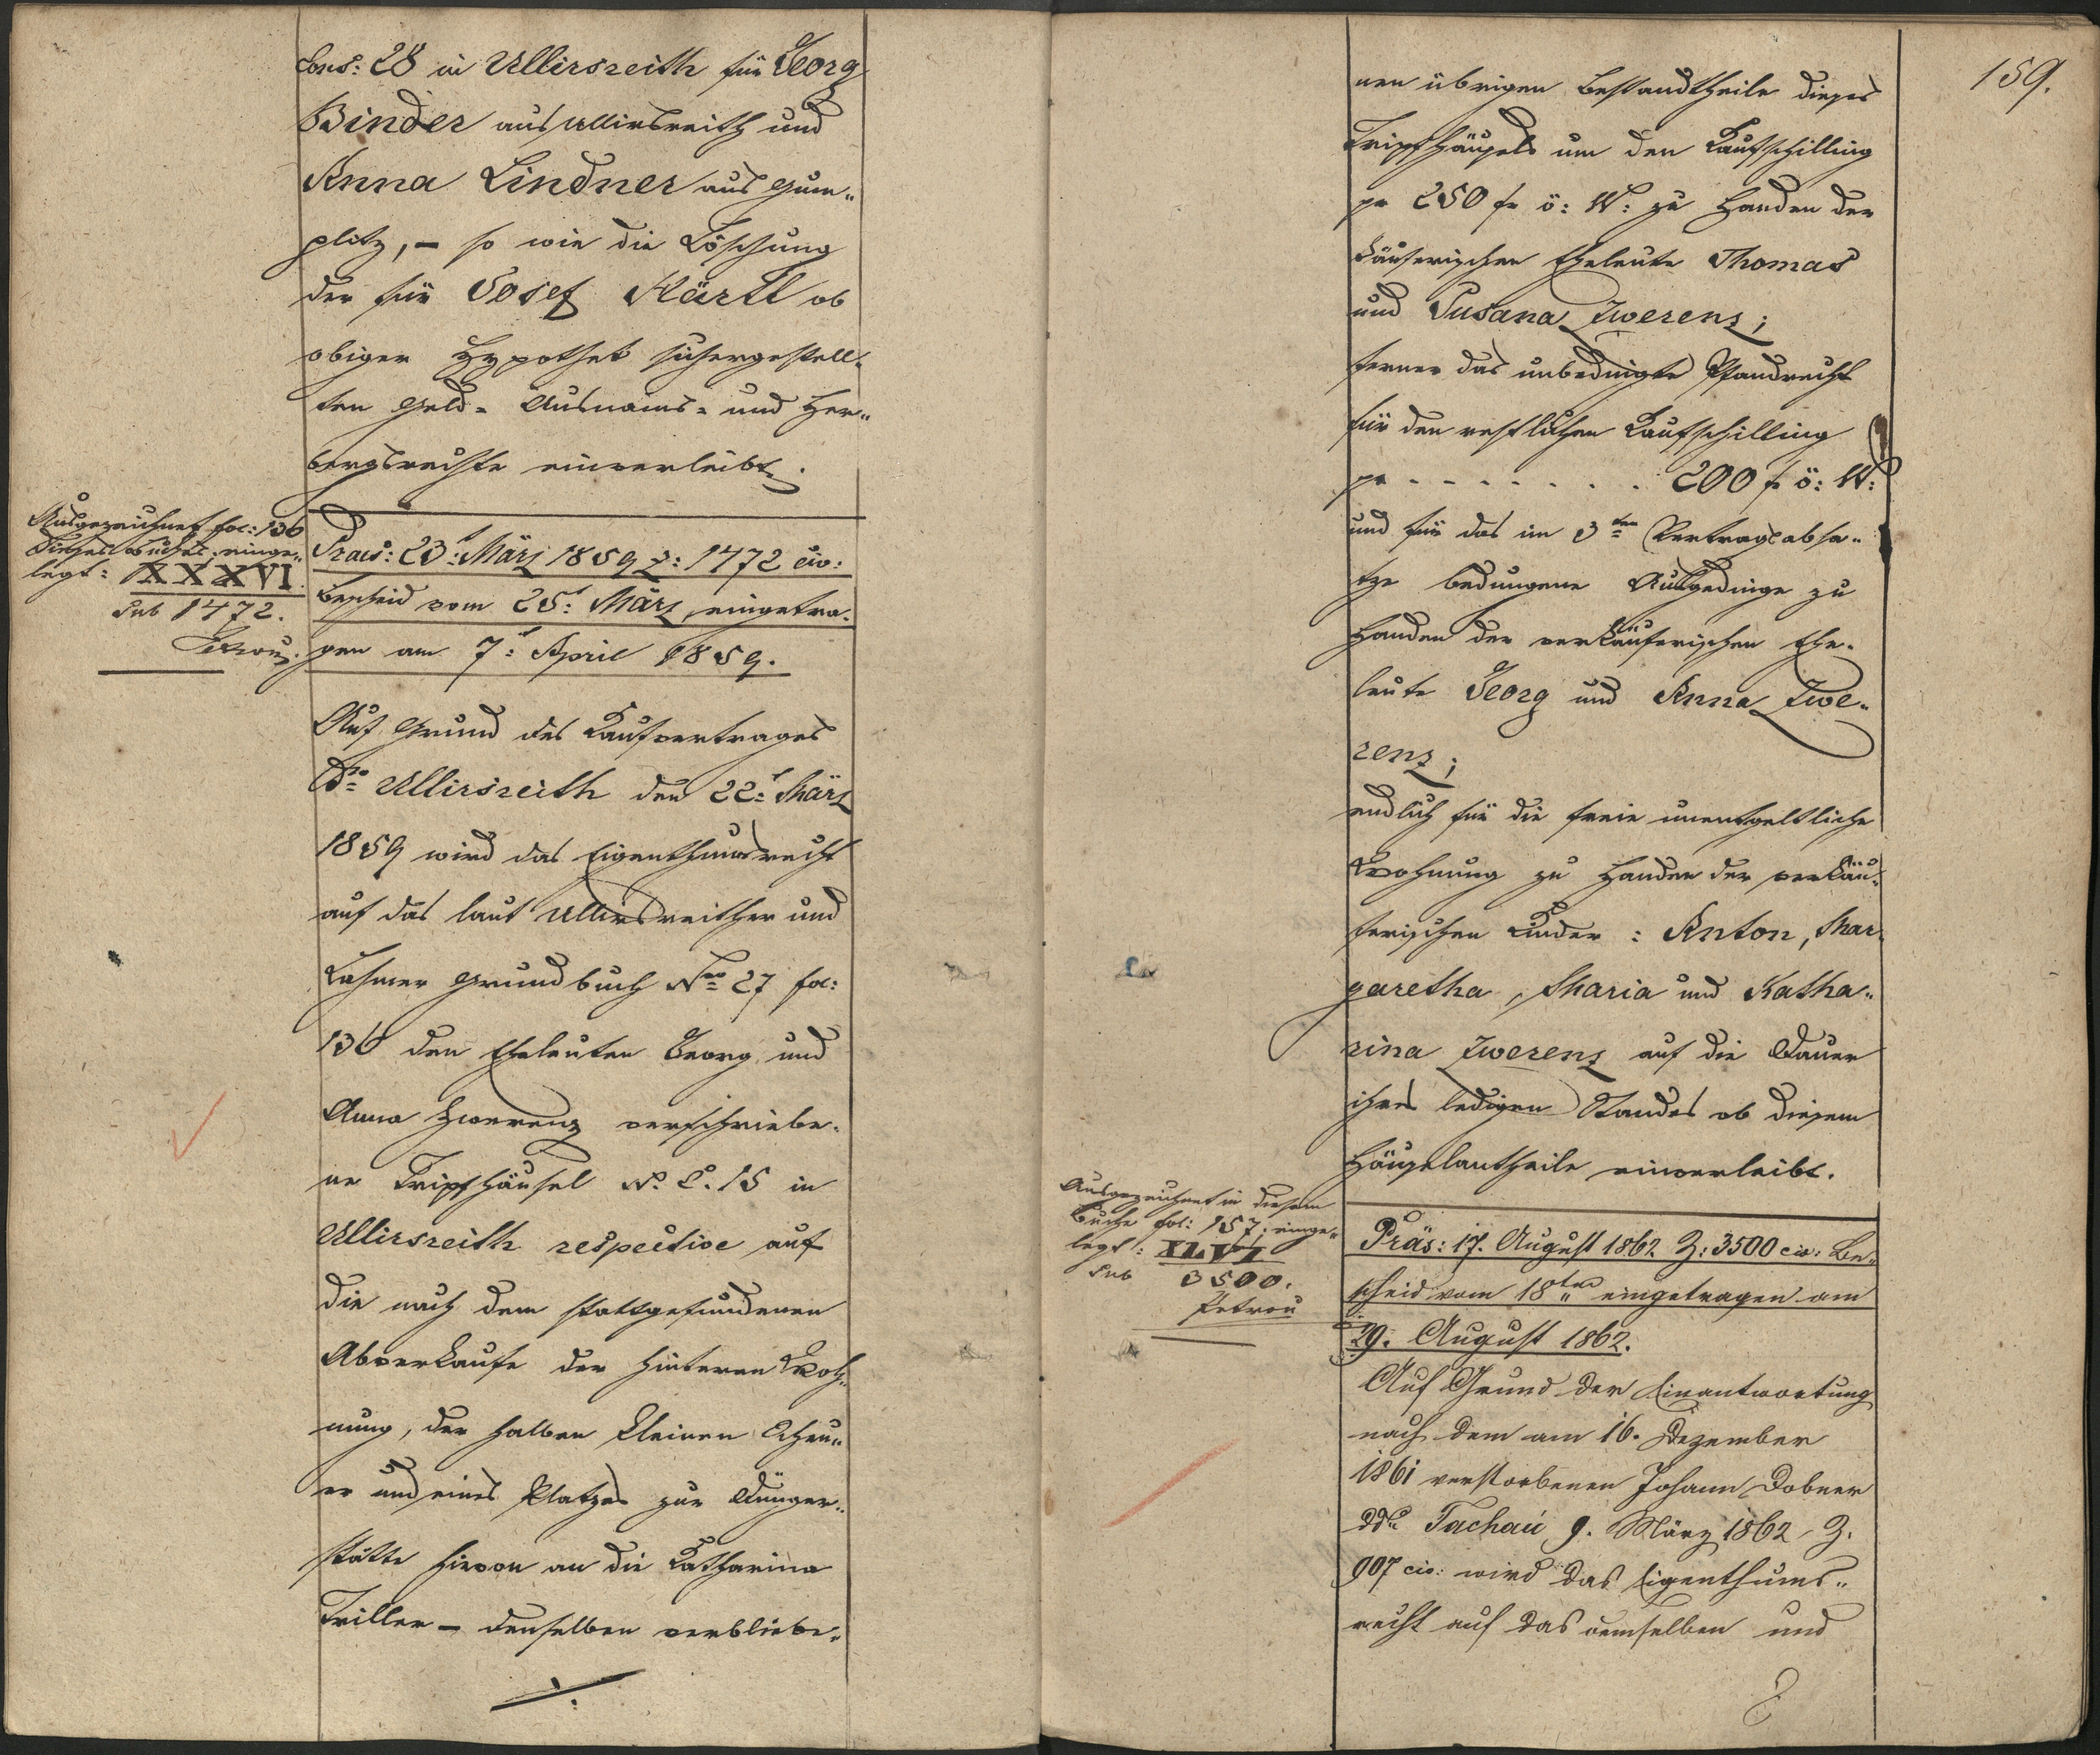 Cons: 28 in Ullirsreith für Georg
Binder aus Ullirsreith und
Anna Lindner aus Gum„
plitz, – so wie die Löschung
der für Josef Härtl ob
obiger Hypothek sichergestell„
ten Geld- Ausnams- und Her„
bergsrechte einverleibt.
Ausgezeichnet fol: 136
dieses Buches; einge„
legt: XXXVI.
sub 1472.
Petrou
Praes: 23t März 1859 Z: 1472 civ:
Bescheid vom 25t März, eingetra„
gen am 7t April 1859.
Auf Grund des Kaufvertrages
ddo Ullirsreith den 22t März
1859 wird das Eigenthumsrecht
auf das laut Ullirsreither und
Lohmer Grundbuch Nro 27 fol:
136 den Eheleuten Georg und
Anna Zwerenz verschriebe„
ne Tripfhäusel N. C. 15 in
Ullirsreith respective auf
die nach dem stattgefundenen
Abverkaufe der hinteren Woh„
nung, der halben kleinen Scheu„
er und eines Platzes zur Dünger„
stätte hievon an die Katharina
Triller – denselben verbliebe„
159.
nen übrigen Bestandtheile dieses
Tripfhäusels um den Kaufschilling
pr 250 fr ö: W: zu Handen der
käuferischen Eheleute Thomas
und Susana Zwerenz;
ferner das unbedingte Pfandrecht
für den restlichen Kaufschilling
pr - - - - - - - 200 fr ö: W:
und für das im 3ten Vertragsabsa„
tze bedungene Ausgedinge zu
Handen der verkäuferischen Ehe„
leute Georg und Anna Zwe„
renz;
endlich für die freie unentgeltliche
Wohnung zu Handen der verkäu„
ferischen Kinder: Anton, Mar„
garetha, Maria und Katha„
rina Zwerenz auf die Dauer
ihres ledigen Standes ob diesem
Häuselantheile einverleibt.
Ausgezeichnet in diesem
Buche fol: 157; einge„
legt: XLVI
sub 3500.
Petrou
Präs: 17. August 1862 Z: 3500 civ: Be„
scheid vom 18ten eingetragen am
29. August 1862.
Auf Grund der Einantwortung
nach dem am 16. Dezember
1861 verstorbenen Johann Dobner
ddo Tachau 9. März 1862, Z.
907 civ: wird das Eigenthums„
recht auf das demselben und